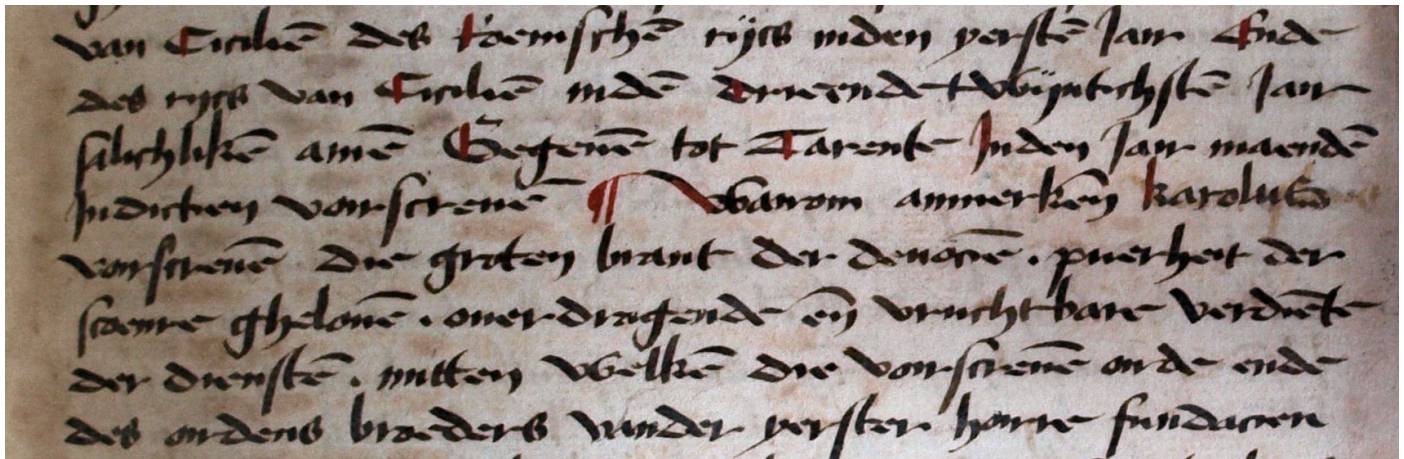 van Ciciliē des Roemschē rijcs inden yersten̄ Jair Ende
des rijcs van Ciciliē indē drieendetwijntichstē Jair
salichlikē amē Gegeuē tot Tarente Inden Jair maendē
Indictien voirscreuē ¶ Wairom anmerkēn karolus
voirscreuē die groten brant der deuociē . puerheit der
scoenre ghelouē . ouerdragende eñ vruchtbare verdiēte
der dienstē . mitten welkē die voirscreuē oirde ende
des ordens broeders vander yerster hoirre fundacien